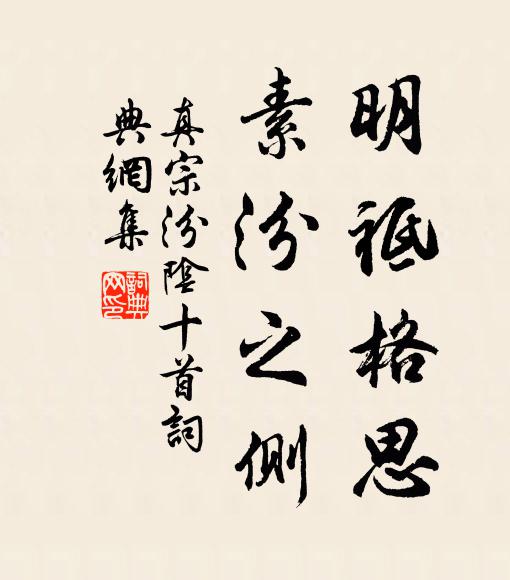 明祗格思
素汾之側
真宗汾陰十首詞
典網集
詞典
网印